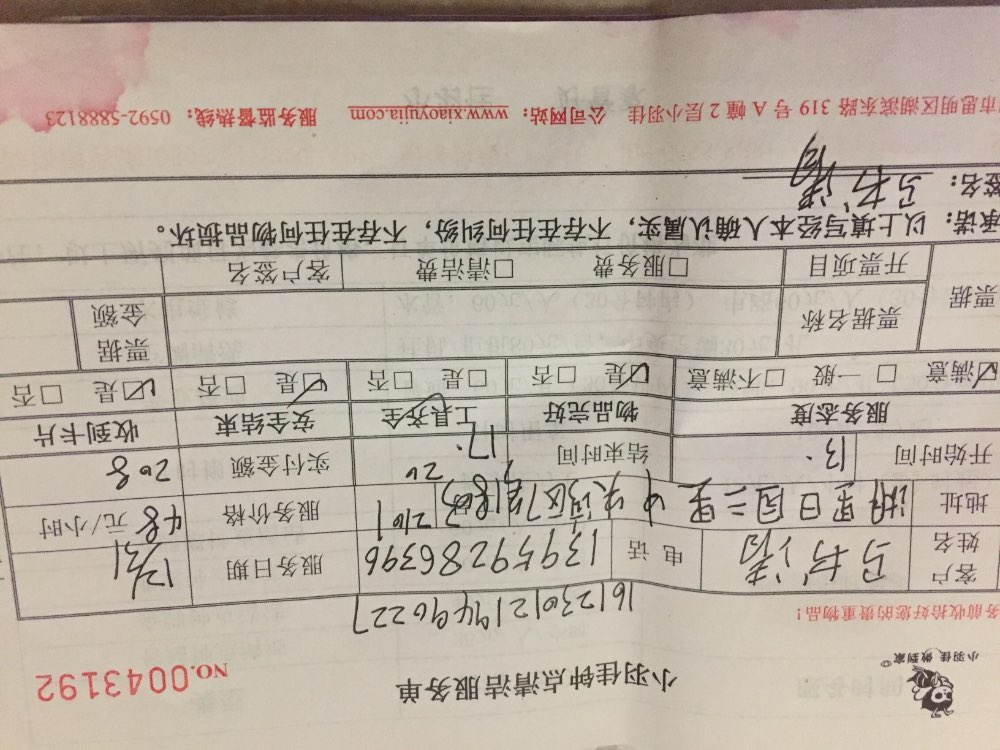 小羽佳 做到家
小羽佳钟点清洁服务单
NO.0043192
务前收拾好您的贵重物品!
1612301219496227
客户姓名 马书清 电话 13959286396 服务日期 12/31
地址 湖里日圆二里 2101 服务价格 48 元/小时
开始时间 13. 结束时间 17.20 实付金额 208
服务态度 物品完好 工具齐全 安全结束 收到卡片
☑满意 □一般 □不满意 ☑是 □否 □是 □否 ☑是 □否 ☑是 □否
票据 票据名称 票据金额
开票项目 □服务费 □清洁费 客户签名
承诺:以上填写经本人确认属实,不存在任何纠纷,不存在任何物品损坏。
签名:马书清
市思明区湖滨东路 319 号 A 幢 2 层小羽佳 公司网站:www.xiaoyujia.com 服务监督热线:0592-5888123